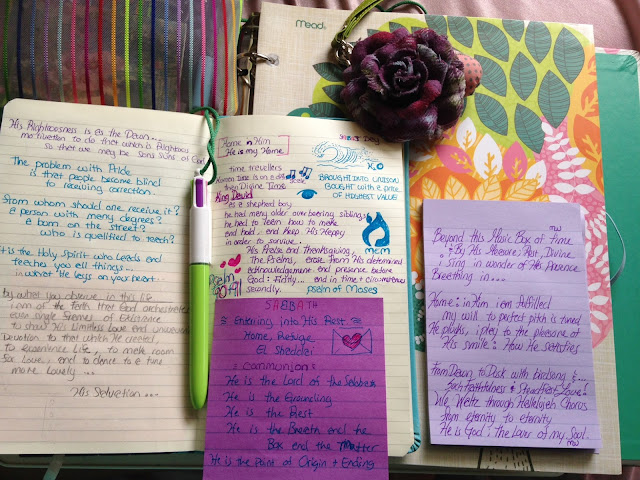 Mead
His Righteousness is as the Dawn...
motivation to do that which is Righteous
so that we may be Sons
The problem with Pride
is that people become blind
to receiving correction.
From whom should one receive it?
a person with many degrees?
a bam on the street?
who is qualified to teach?
It is the Holy Spirit who Leads and
teaches you all things...
in what He lays on your heart.
by what you observe in this life
i am of the faith that God orchestrates
every single Scenes of Existence
to show His Limitless Love and
Devotion to that which He created,
to Experience Life, to make room
for Love, and to dance to a time
more Lovely...
His Salvation...
Home n Him
He is my Home
time travellers
Divine Time
King David
as a shepherd boy
he had many older overbearing siblings
he had to learn how to make
and hold and Keep His Happy
in order to survive..
His Praise and Thanksgiving,
The Psalms, arose From His determined
acknowledgement and presence before
God: Firstly... and in time + circumstances
secondly.
Psalm
90+91
BROUGHT INTO UNISON
BOUGHT with a price
of HIGHEST VALUE
psalm of Moses
SABBATH
Entering into His Rest
Home, Refuge
El Shaddai
Communion
He is the Lord of the Sabbath
He is the Grounding
He is the Rest
He is the Breath and the
Box and the Matter
He is the Point of Origin + Ending
Beyond this Music Box of time
By His Measure: Rest, Divine
i Sing in wonder of His Presence
Breathing in...
Home: in Him i am Fulfilled
my will to perfect pitch is tuned
He plucks, i play to the pleasure of
His smile: How He satisfies
From Dawn to Dusk with birdsong &...
Faithfulness & Steadfast Love:
We Waltz through Hallelujah Chorus
from eternity to eternity
He is God, The Lover of my Soul.